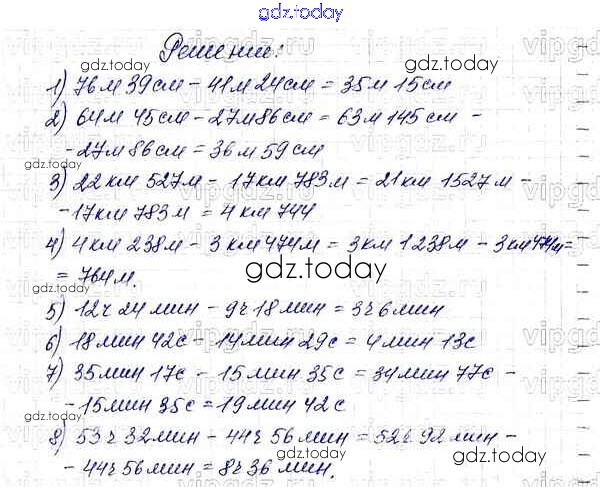 gdz.today
Решение:
1) 76м 39см - 41м 24см = 35м 15см
2) 64м 45см - 27м 86см = 63м 145см -
- 27м 86см = 36м 59см
3) 22км 527м - 17км 783м = 21км 1527м -
- 17км 783м = 4км 744
4) 4км 238м - 3км 474м = 3км 1238м - 3км 474м =
= 764м.
5) 12ч 24мин - 9ч 18мин = 3ч 6мин
6) 18мин 42с - 14мин 29с = 4мин 13с
7) 35мин 17с - 15мин 35с = 34мин 77с -
- 15мин 35с = 19мин 42с
8) 53ч 32мин - 44ч 56мин = 52ч 92мин -
- 44ч 56мин = 8ч 36мин.